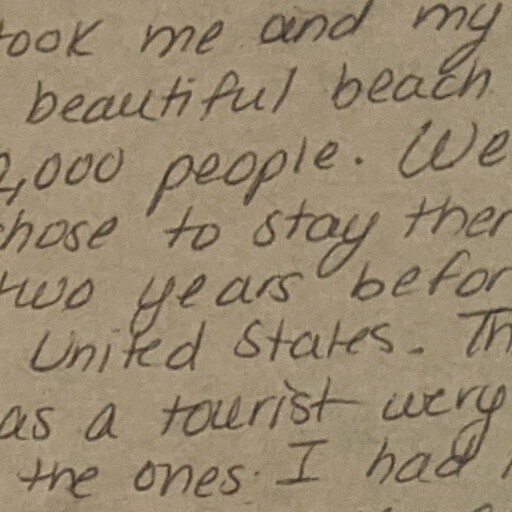 took me and my
beautiful beach
2,000 people. We
chose to stay ther
two years befor
United States. Th
as a tourist wery
the ones. I had